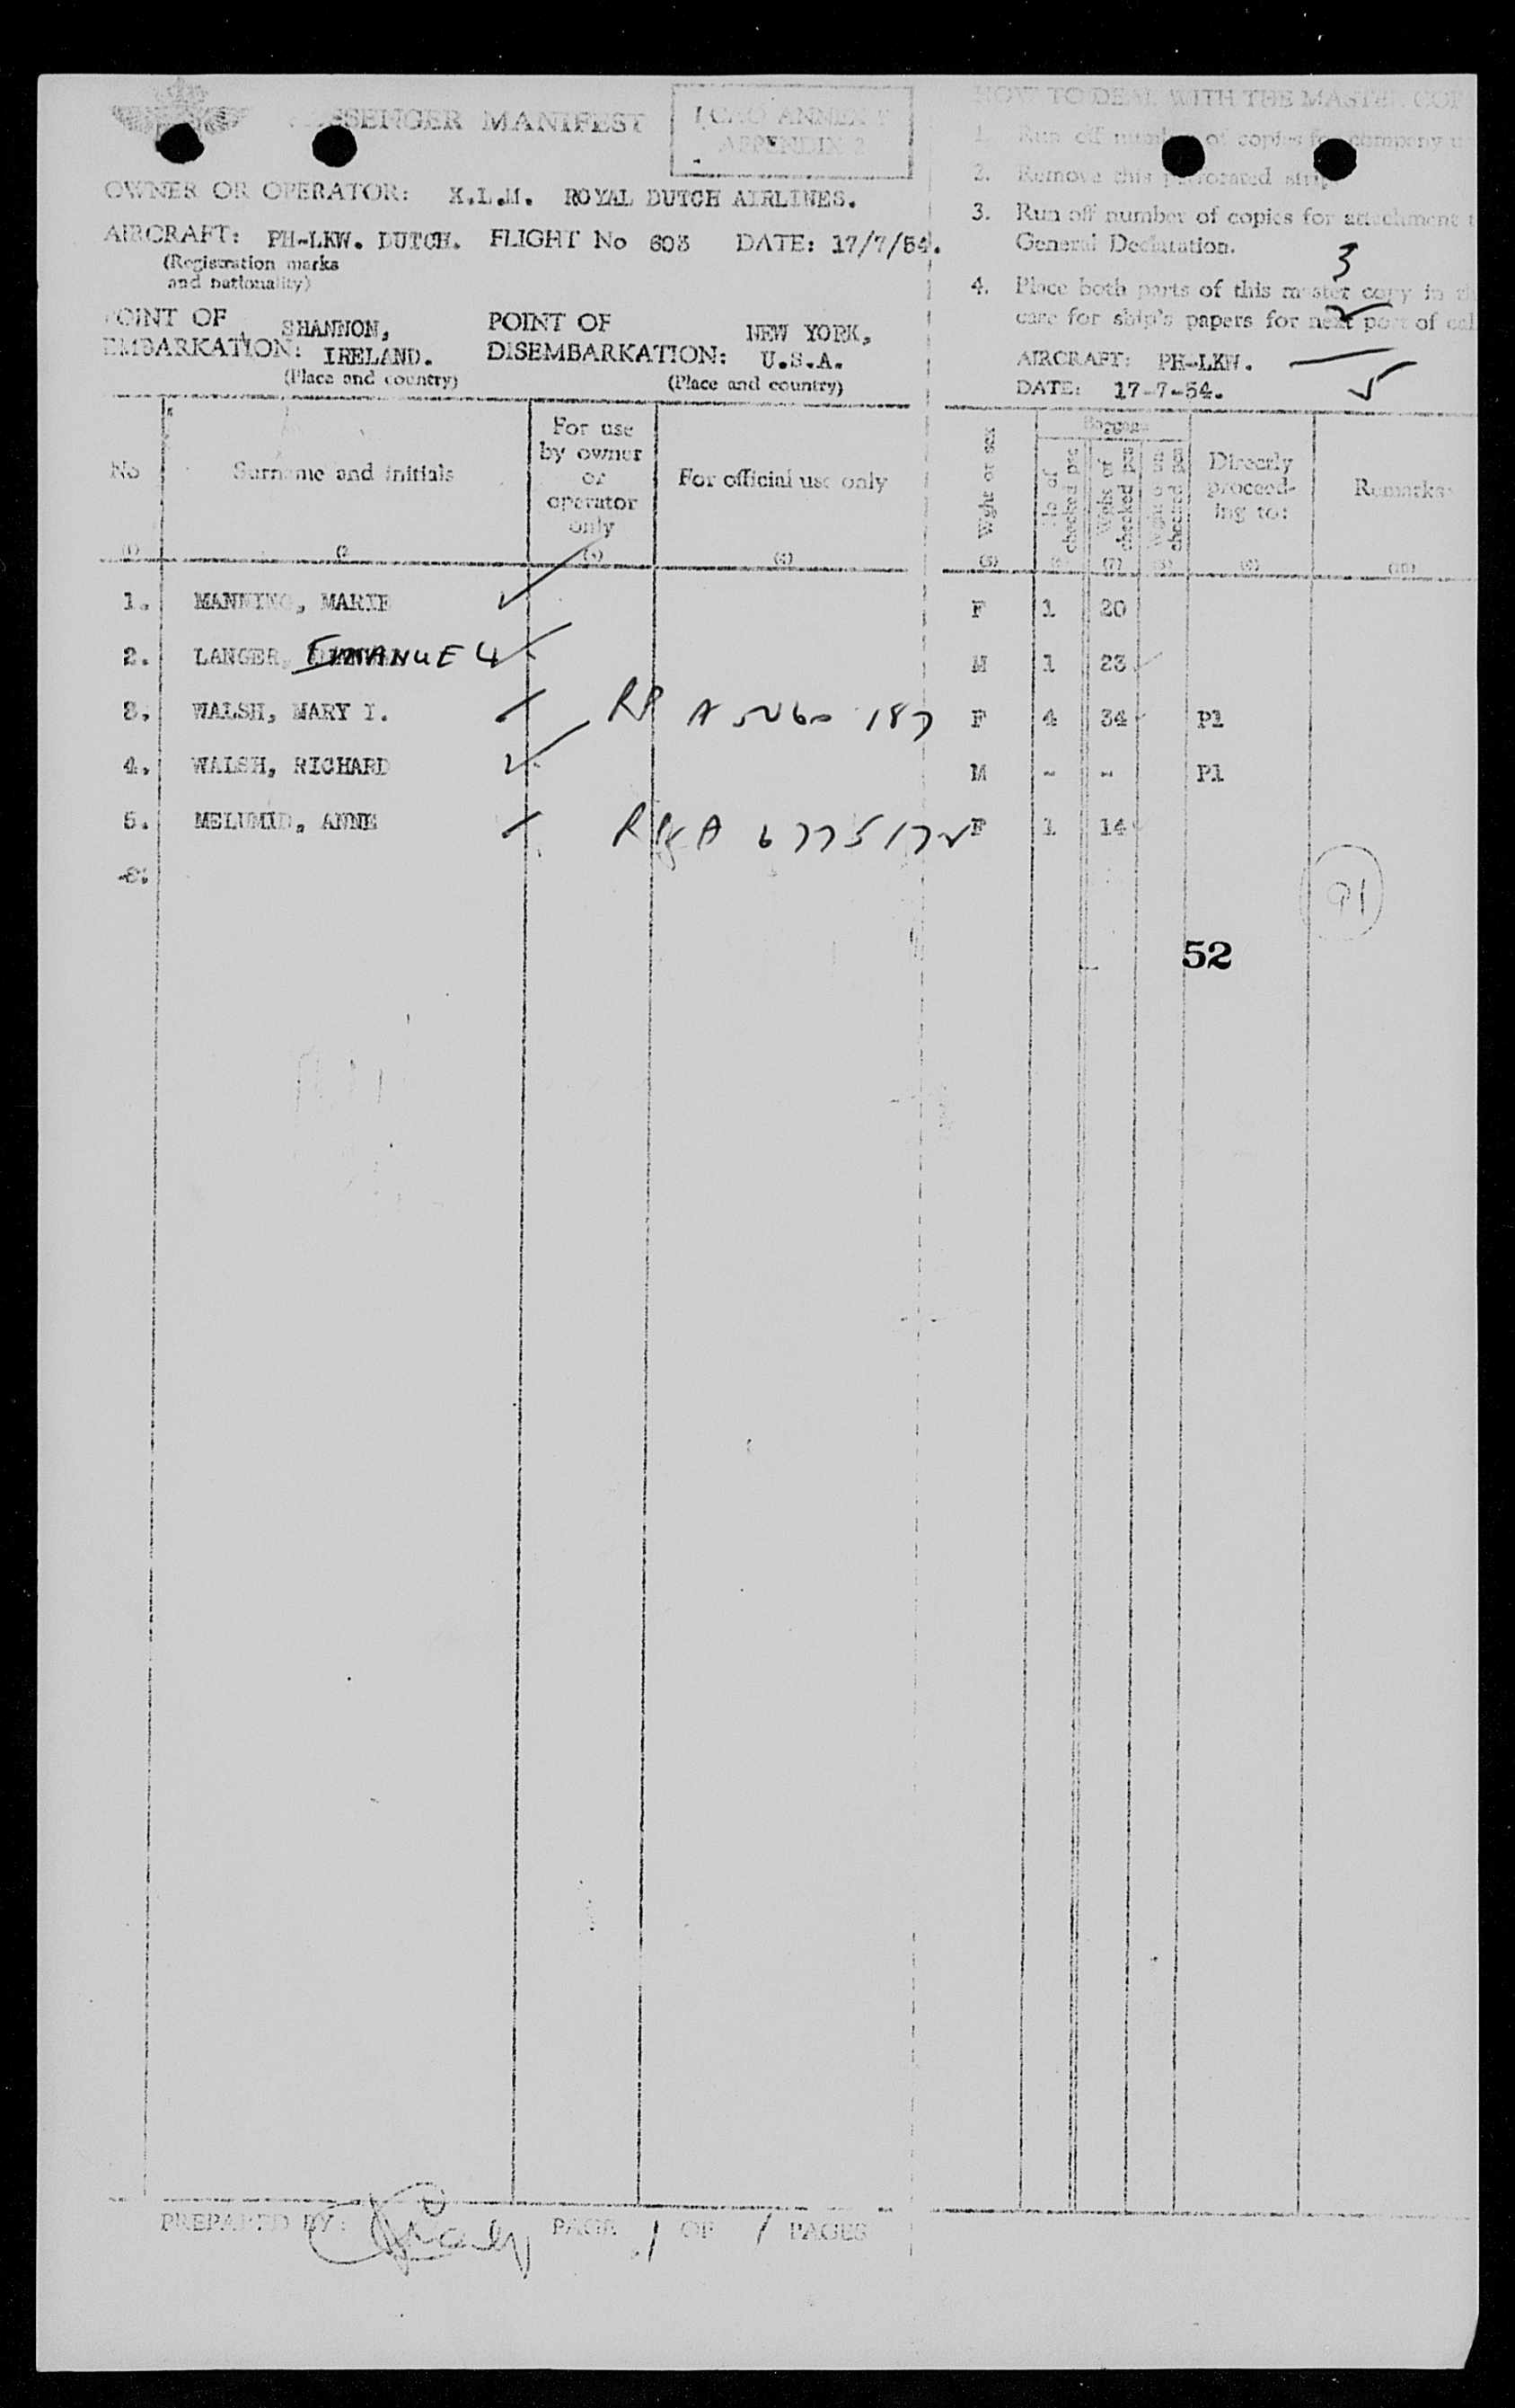 PASSENGER MANIFEST
ICAO ANNEX
APPENDIX 2
OWNER OR OPERATOR: K.L.M. ROYAL DUTCH AIRLINES.
AIRCRAFT: PH-LKW. DUTCH. FLIGHT No 603 DATE: 17/7/54.
(Registration marks
and nationality)
POINT OF
EMBARKATION: SHANNON,
IRELAND.
(Place and country)
POINT OF
DISEMBARKATION: NEW YORK,
U.S.A.
(Place and country)
HOW TO DEAL WITH THE MASTER COP
1. Run off number of copies for company u
2. Remove this perforated strip
3. Run off number of copies for attachment t
General Declaration.
3
4. Place both parts of this master copy in th
case for ship's papers for next port of cal
2
AIRCRAFT: PH-LKW.
5
DATE: 17-7-54.
No
(1)
Surname and initials
(2
For use
by owner
or
operator
only
(3)
For official use only
(4)
Wght or sex
(5)
Baggage
No of
checked pcs
(6)
Wght of
checked
(7)
Directly
proceed-
ing to:
(9)
Remarks
(10)
1. MANNING, MARIE F 1 20
2. LANGER, EMANUEL M 1 23
3. WALSH, MARY I. RP A 5260 187 F 4 34 P1
4. WALSH, RICHARD M - - P1
5. MELUMID, ANNE A 6775172 F 1 14
6.
91
52
PREPARED BY: PAGE 1 OF 1 PAGES